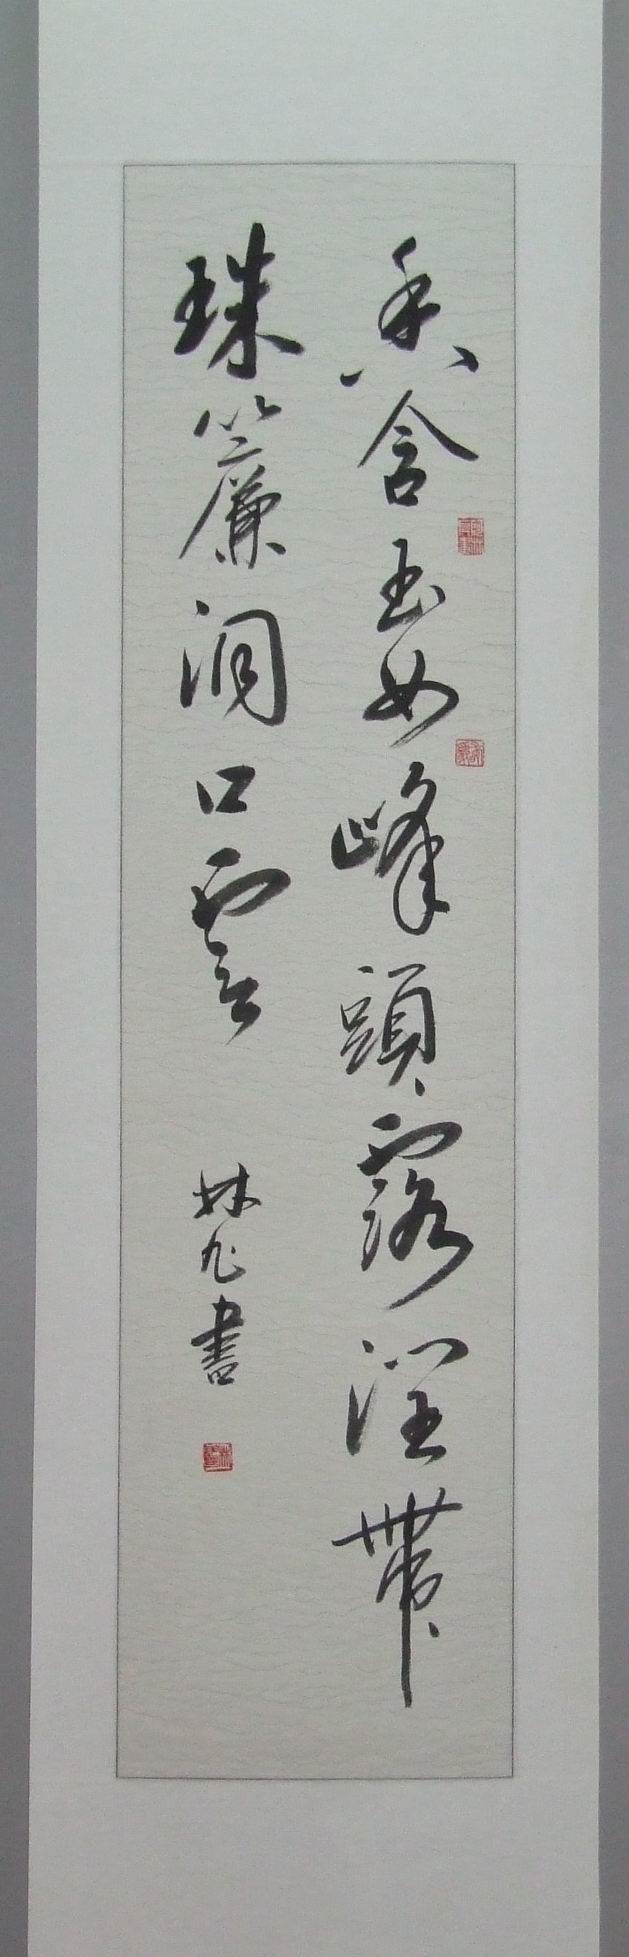 香含玉女峰頭露潤帶
珠簾洞口雲
林 書